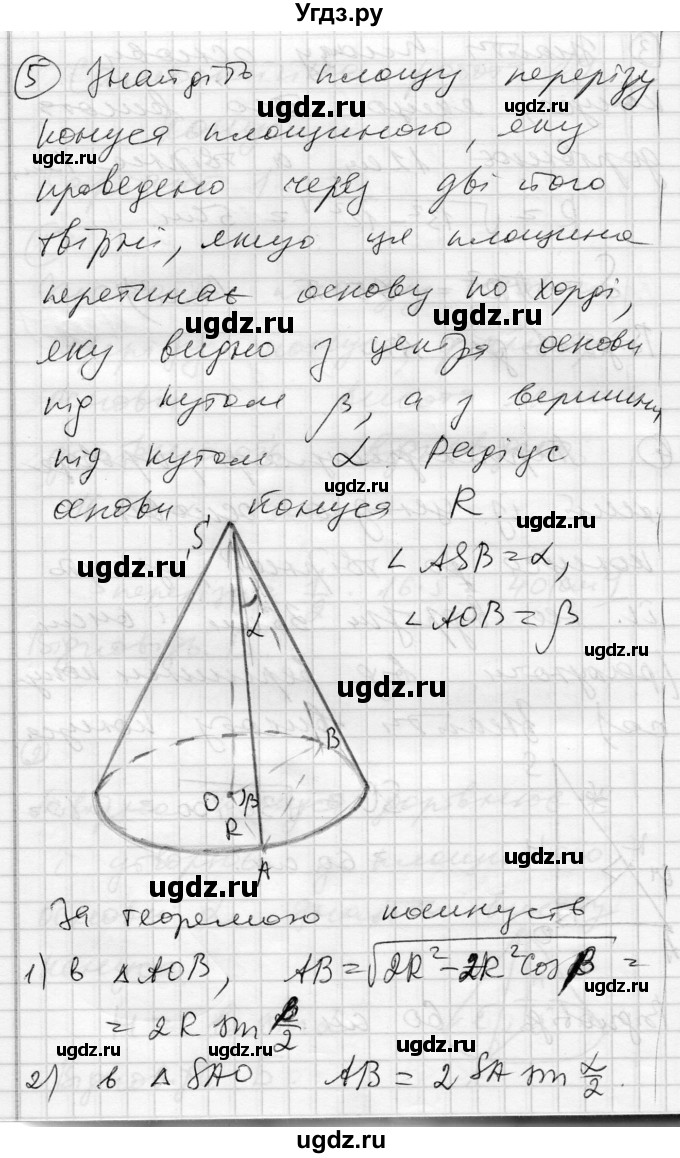 Угдз.ру
5 Знайдіть площу перерізу
ugdz.ru ugdz.ru
конуса площиною, яку
ugdz.ru
проведено через дві його
твірні, якщо ця площина
перетинає основу по хорді,
ugdz.ru ugdz.ru
яку видно з центра основи
під кутом β, а з вершини
під кутом α. Радіус
ugdz.ru
основи конуса R.
ugdz.ru
S
∠ASB = α,
ugdz.ru
α
∠AOB = β
ugdz.ru
ugdz.ru
B
O β
R
A
ugdz.ru
ugdz.ru
За теоремою косинусів
1) в △AOB, AB = √2R² - 2R² cos β =
ugdz.ru
= 2R sin β/2
ugdz.ru ugdz.ru ugdz.ru
2) в △SAO AB = 2 SA sin α/2.
ugdz.ru